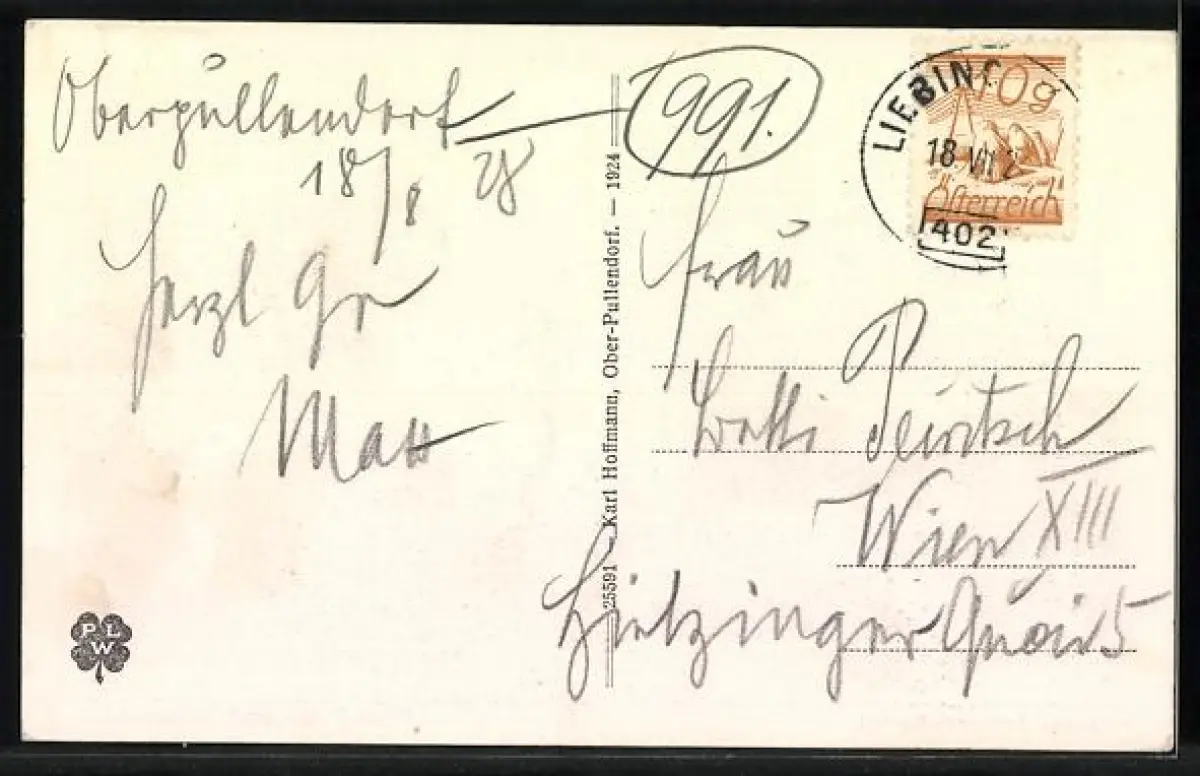 Oberpullendorf
991.
18/8 28
Herzl Gr
Frau
Wien XIII
Hietzinger Quai 5
25591 - Karl Hoffmann, Ober-Pullendorf. — 1924
LIEBING
18. VII 2
402
10g
Österreich
P L
W